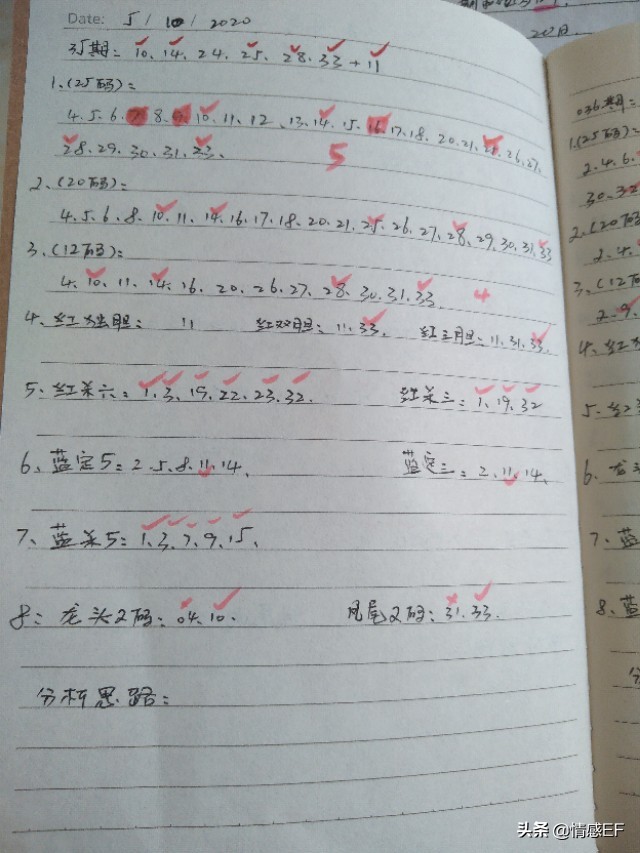 Date: 5 / 10 / 2020
35期: 10、14、24、25、28、33 + 11
1、(25码):
4、5、6、7、8、9、10、11、12、13、14、15、16、17、18、20、21、25、26、27、
28、29、30、31、33、
5
2、(20码):
4、5、6、8、10、11、14、16、17、18、20、21、25、26、27、28、29、30、31、33
3、(12码):
4、10、11、14、16、20、26、27、28、30、31、33、 4
4、红独胆: 11 红双胆: 11、33、 红三胆: 11、31、33、
5、红杀六: 1、3、19、22、23、32、 红杀三: 1、19、32
6、蓝定5: 2、5、8、11、14、 蓝定三: 2、11、14、
7、蓝杀5: 1、3、7、9、15、
8: 龙头2码: 04、10、 凤尾2码: 31、33、
分析思路:
20日
036期:
1、(25码):
2、4、6、
30、32
2、(20码
2、4、
3、(12码
2、9、
4、红
5、红
6、龙
7、蓝
8、蓝
分
头条 @情感EF